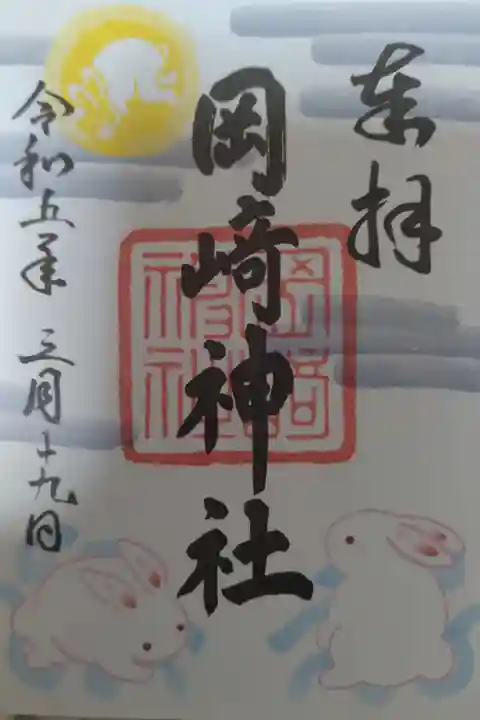 奉拝
岡崎神社
岡崎神社
令和五年 三月十九日